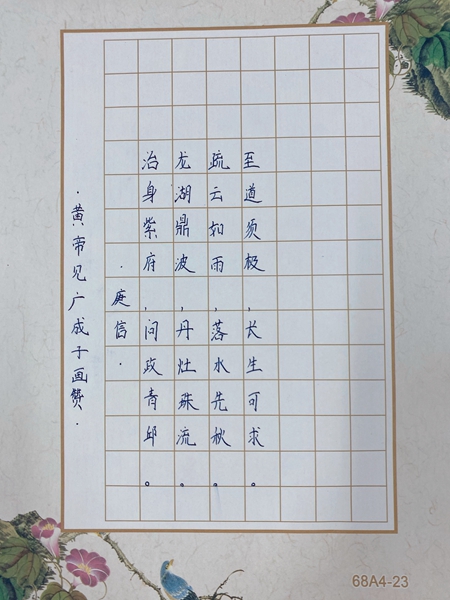 ·黄帝见广成子画赞·
·庾信·
治身紫府，问政青邱。
龙湖鼎波，丹灶珠流。
疏云如雨，落水先秋。
至道须极，长生可求。
68A4-23